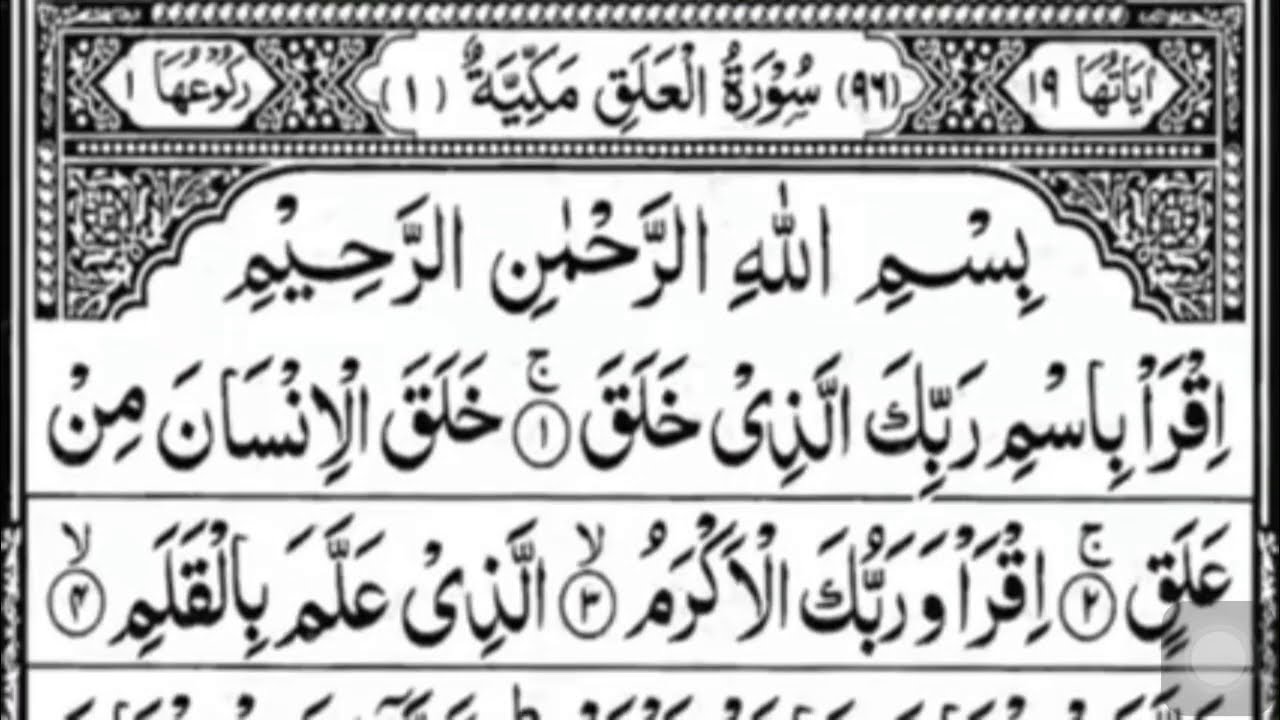 اٰيَاتُهَا ١٩ (٩٦) سُوْرَةُ الْعَلَقِ مَكِّيَّةٌ (١) رُكُوْعُهَا ١
بِسْمِ اللّٰهِ الرَّحْمٰنِ الرَّحِيْمِ
اِقْرَاْ بِاسْمِ رَبِّكَ الَّذِىْ خَلَقَ ۚ ① خَلَقَ الْاِنْسَانَ مِنْ
عَلَقٍ ۚ ② اِقْرَاْ وَرَبُّكَ الْاَكْرَمُ ۙ ③ الَّذِىْ عَلَّمَ بِالْقَلَمِ ۙ ④